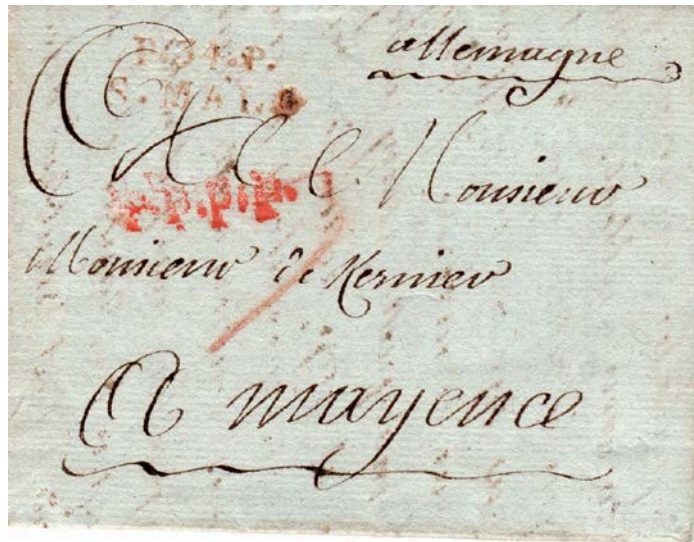 P.34.P.
S. MALO
allemagne
A Monsieur
P.P.P.P.
Monsieur de Kernier
A mayence